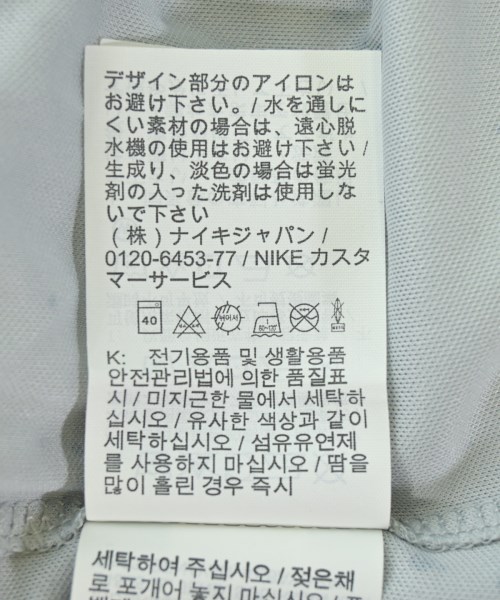 デザイン部分のアイロンは
お避け下さい。/ 水を通しに
くい素材の場合は、遠心脱
水機の使用はお避け下さい /
生成り、淡色の場合は蛍光
剤の入った洗剤は使用しな
いで下さい
（株）ナイキジャパン /
0120-6453-77 / NIKE カスタ
マーサービス
40
K: 전기용품 및 생활용품
안전관리법에 의한 품질표
시 / 미지근한 물에서 세탁하
십시오 / 유사한 색상과 같이
세탁하십시오 / 섬유유연제
를 사용하지 마십시오 / 땀을
많이 흘린 경우 즉시
세탁하여 주십시오 / 젖은채
로 포개어 놓지 마십시오 /